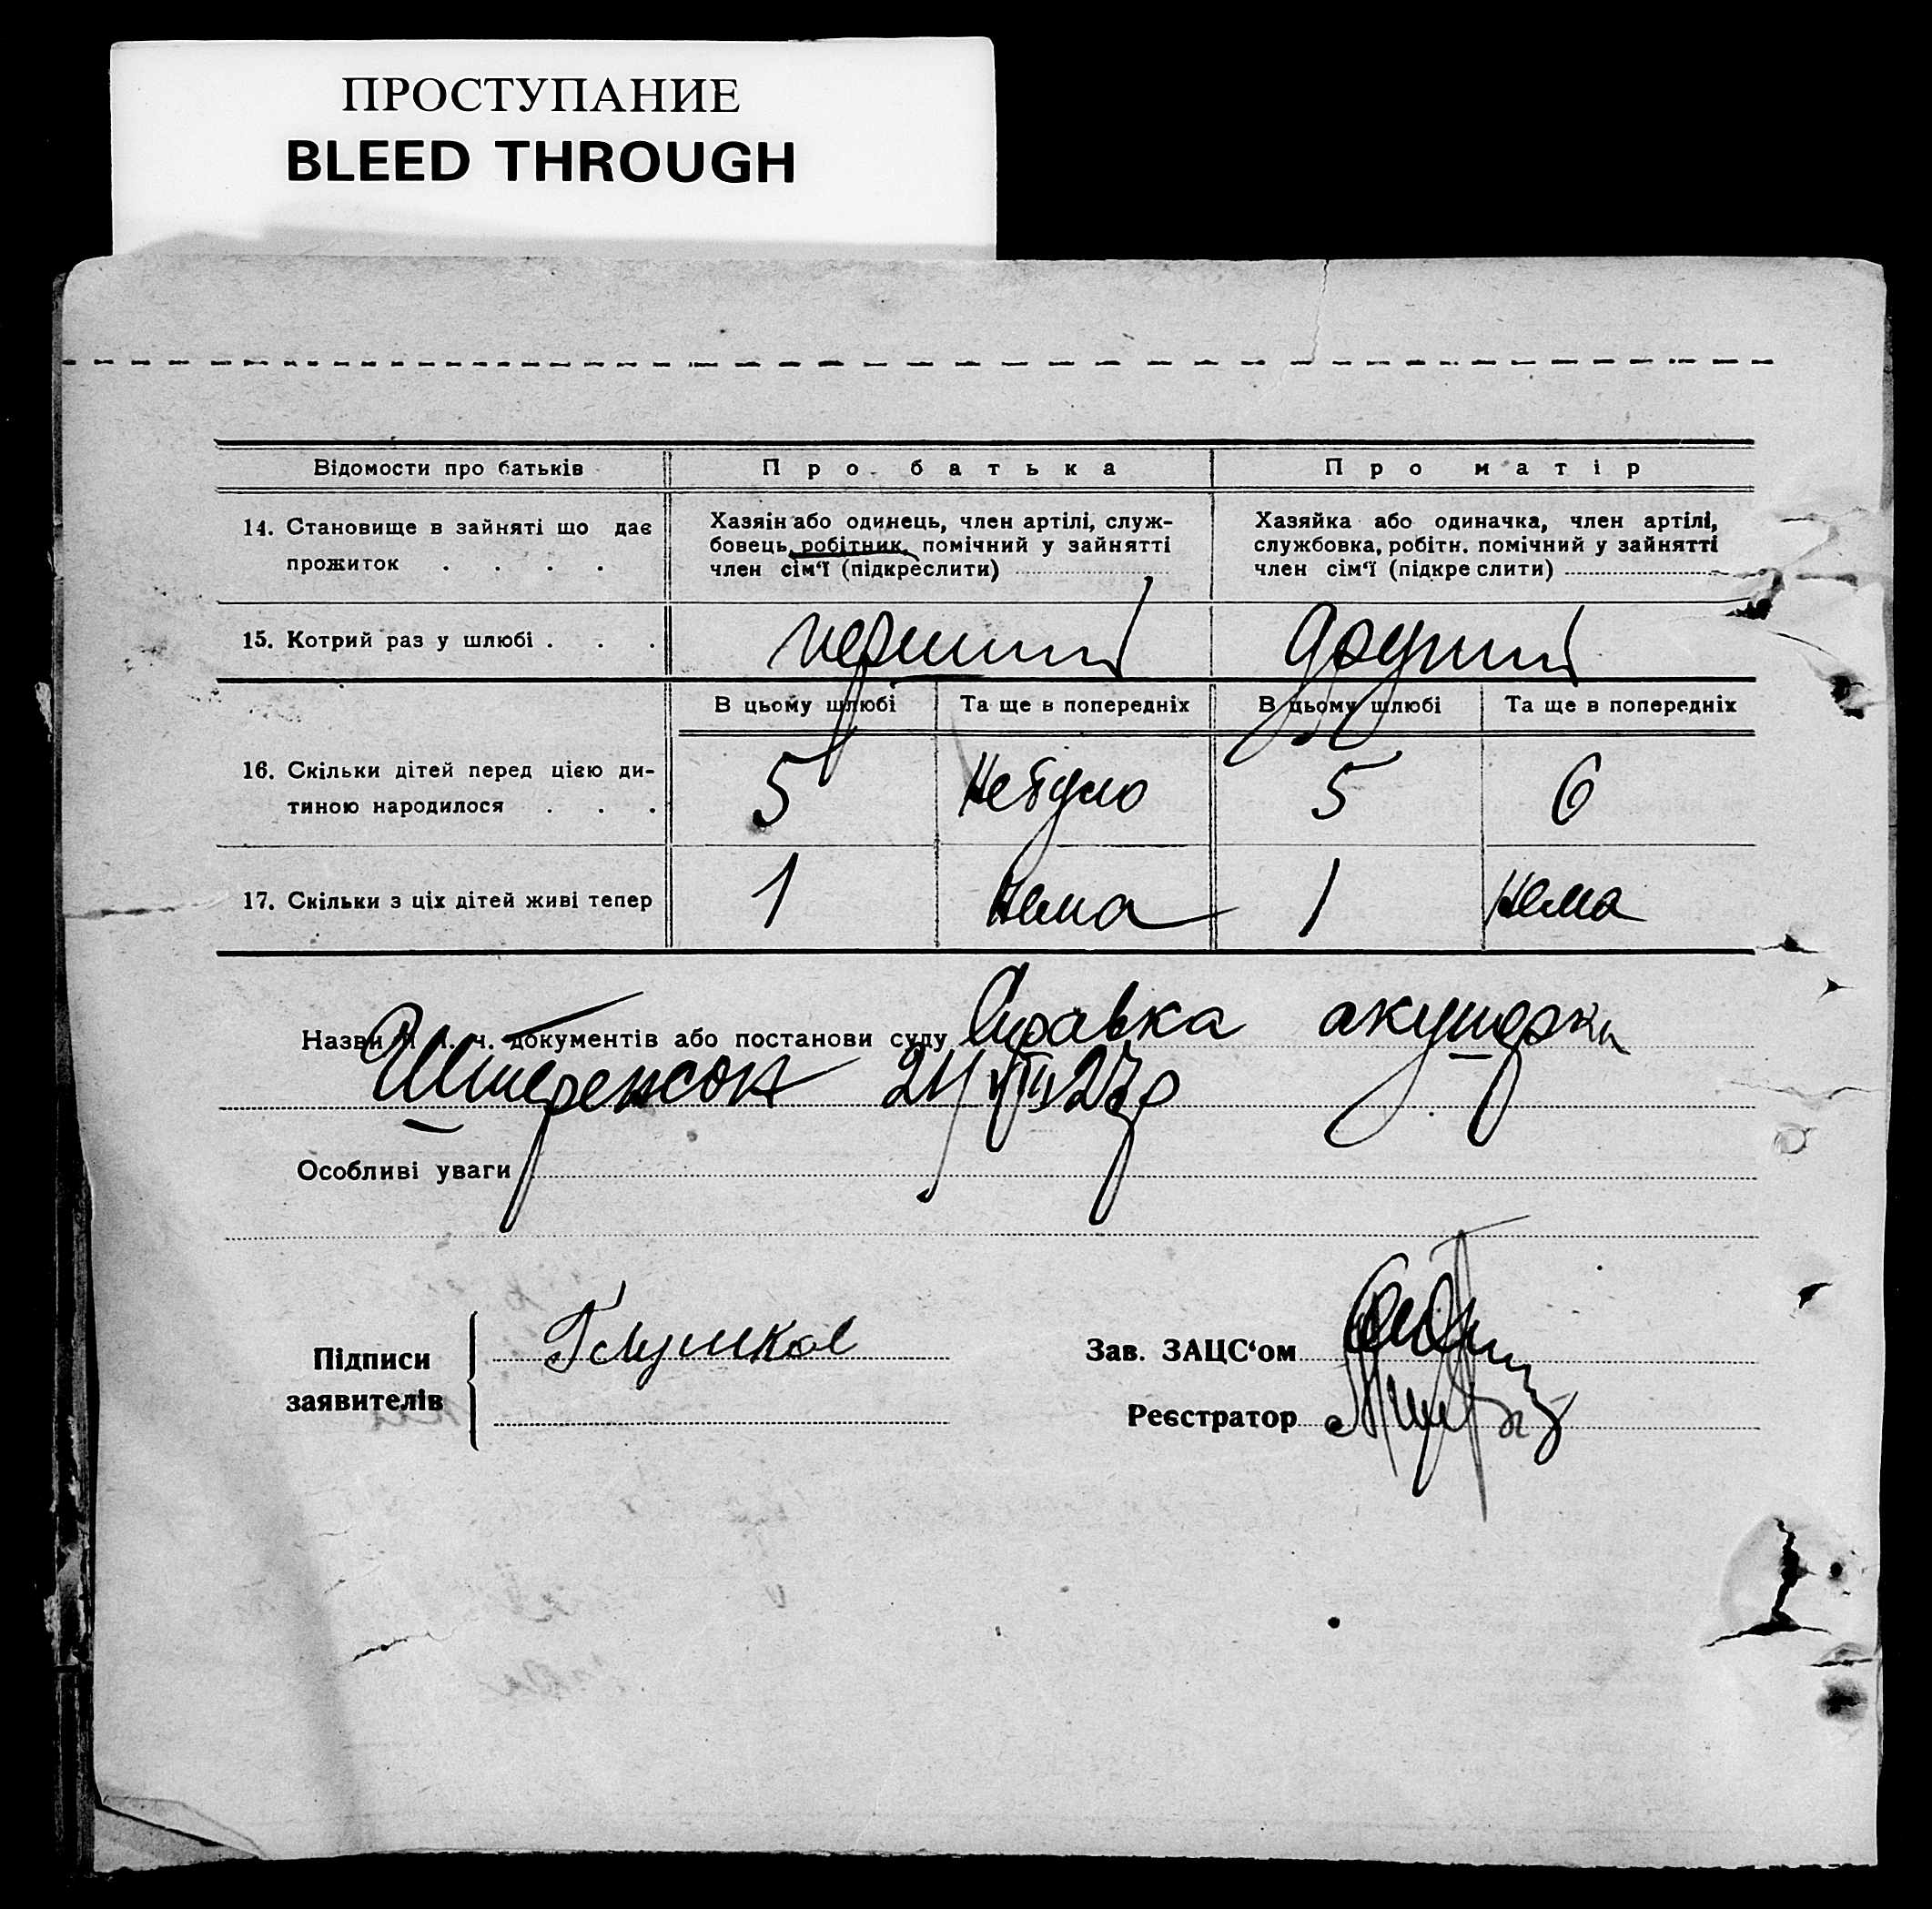 ПРОСТУПАНИЕ
BLEED THROUGH
Відомости про батьків Про батька Про матір
14. Становище в зайняті що дає прожиток . . . .
Хазяїн або одинець, член артілі, служ-
бовець, робітник, помічний у зайнятті
член сім‘ї (підкреслити)
Хазяйка або одиначка, член артілі,
службовка, робітн. помічний у зайнятті
член сім‘ї (підкреслити)
15. Котрий раз у шлюбі . . . перший другий
В цьому шлюбі Та ще в попередніх В цьому шлюбі Та ще в попередніх
16. Скільки дітей перед цією ди-
тиною народилося . . . 5 Не було 5 6
17. Скільки з ціх дітей живі тепер 1 Нема 1 Нема
Назви документів або постанови суду Справка акушерки
Штеренсон 24/VIII 27р
Особливі уваги
Підписи
заявителів
Глушков
Зав. ЗАЦС‘ом
Реєстратор